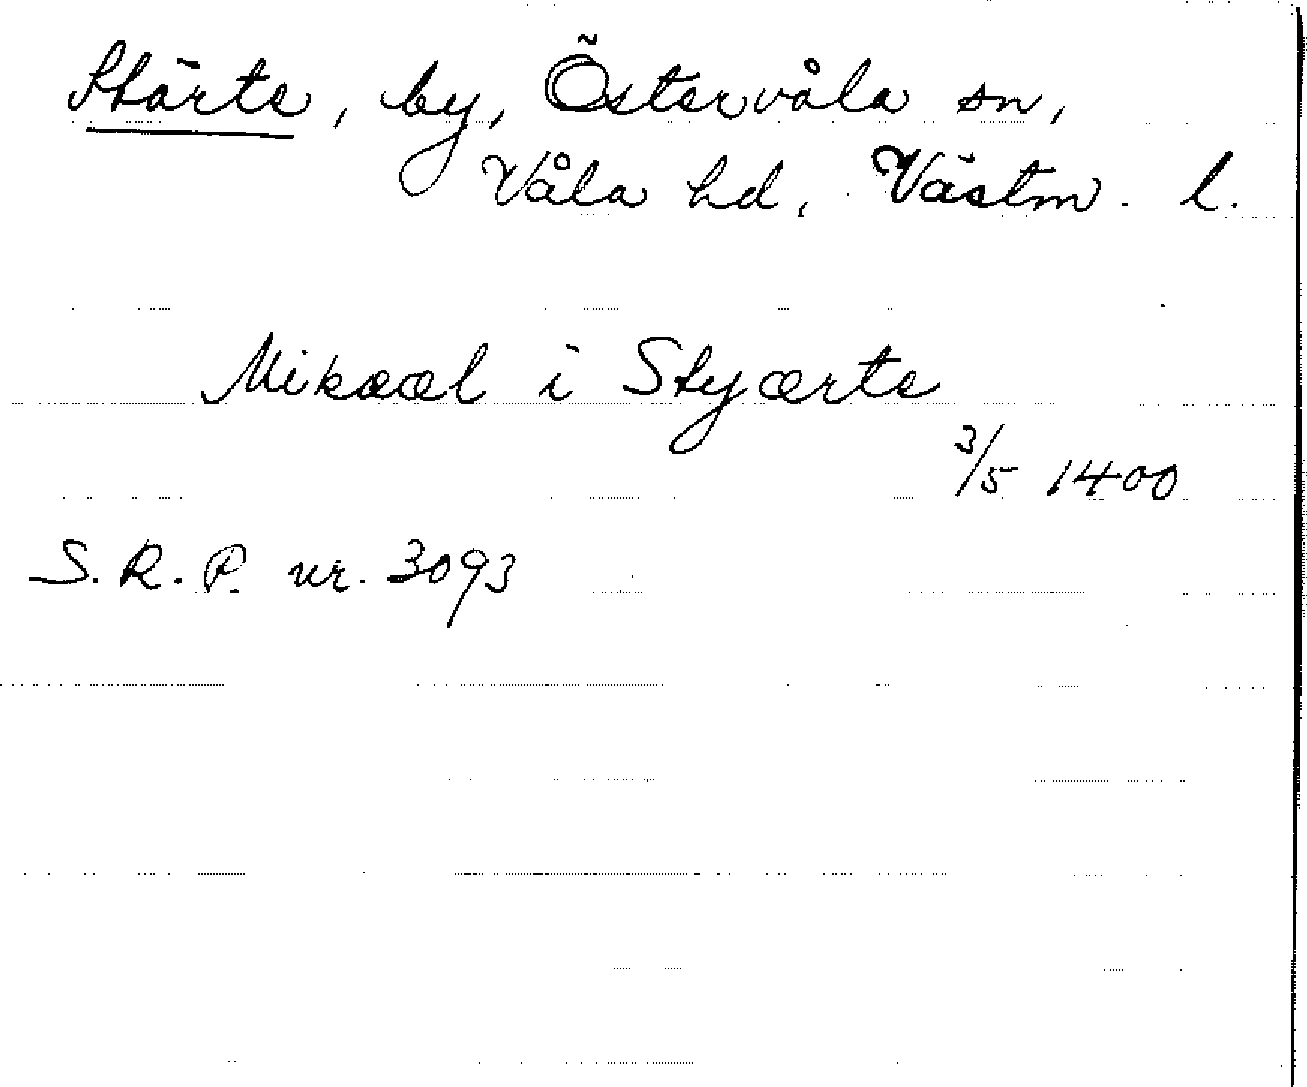 Stärte, by, Östervåla sn,
Våla hd, Västm. l.
Mikææl i Styærte
3/5 1400
S. R. P. nr. 3093